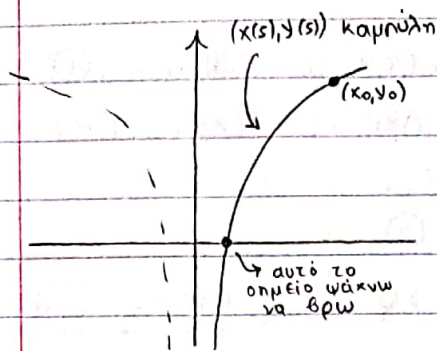 (x(s),y(s)) καμπύλη
(x₀,y₀)
αυτό το
σημείο ψάχνω
να βρω